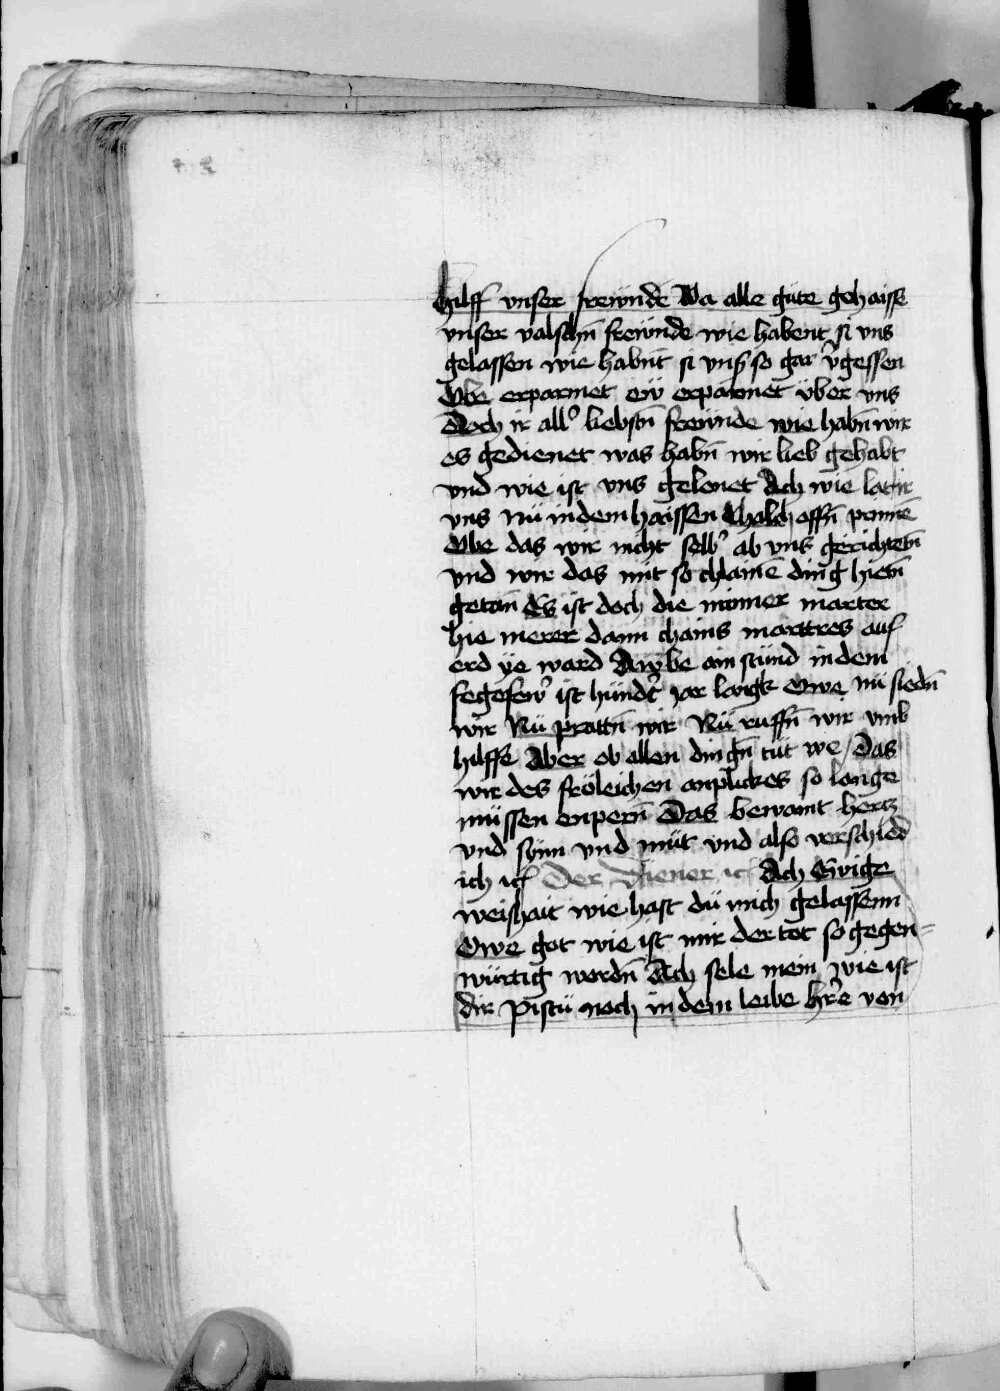 hilff vnser freẅnde Wa alle güte gehaisse
vnser valschñ freẅnde wie habent si vns
gelassen wie habñt si vns so gar v̾gessen
Obe erparmet eẅ erparmet über vns
Doch ir all̾ liebstñ freẅnde wie habñ wir
es gedienet was habñ wir lieb gehabt
vnd wie ist vns gelonet Ach wie latt ir
vns Nü in dem haissen Chalch offñ prinnē
Obe das wir nicht selb̾ ab vns gerichtetñ
vnd wir das mit so chlainē ding hietñ
getan Es ist doch die minner marter
hie merer dann chains marttres auf
erd ye ward Awbe ain stünd in dem
fegefew̾ ist hündt̾ Jar langk Owe nü siedñ
wir Nü prattñ wir Nü ruffñ wir vmb
hilffe Aber ob allen dingñ tüt we / Das
wir des fröleichen anplickes so lange
müssen enperñ Das bewamt hertz
vnd synn vnd müt vnd also verschied
ich ich Der Diener ic Ach Ewige
weishait wie hast dü mich gelassenn
Owe got wie ist mir der tot so gegen-
würtig wordñ Ach sele mein wie ist
dir pistü noch in dem leibe h̾re von